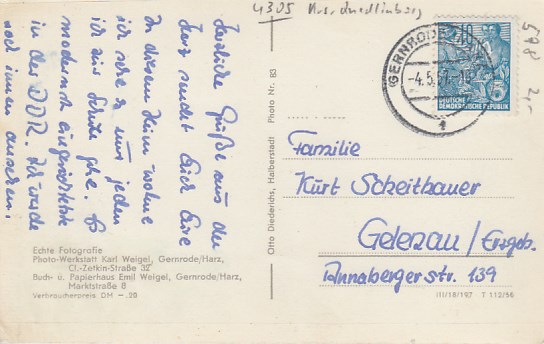 4305 Krs. Quedlinburg
598
2,-
GERNRODE
-4.5.57.-18
1
10
DEUTSCHE
DEMOKRATISCHE REPUBLIK
Herzliche Grüße aus dem
Harz sendet Euch Eure
In diesem Heim wohne
ich sehe u. muß jeden
ich zur Schule gehe. Es
modernst eingerichtete
in der DDR. Ich werde
noch innen ansehen.
Otto Diederichs, Halberstadt Photo Nr. 83
Familie
Kurt Scheithauer
Gelenau/Erzgeb.
Annabergerstr. 139
Echte Fotografie
Photo-Werkstatt Karl Weigel, Gernrode/Harz,
Cl.-Zetkin-Straße 32
Buch- u. Papierhaus Emil Weigel, Gernrode/Harz,
Marktstraße 8
Verbraucherpreis DM -.20
III/18/197 T 112/56